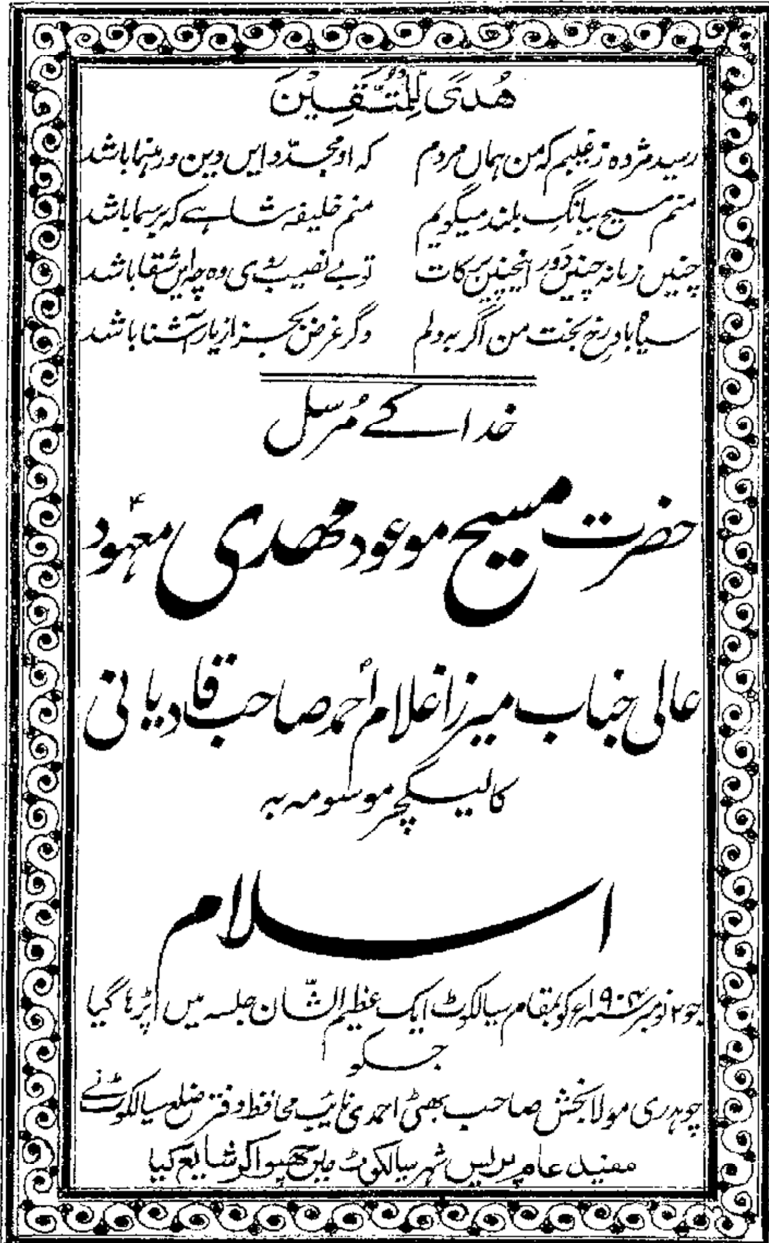 ھُدًی لِّلْمُتَّقِیْنَ
رسید مژدہ زغیبم کہ من ہماں مردم کہ او مجدّد ایں دین و رہنما باشد
منم مسیح ببانگِ بلند میگویم منم خلیفہ شاہے کہ برسما باشد
چنیں زمانہ چنیں دَور اینچنیں برکات تو بے نصیب روی وہ چہ ایں شقا باشد
سیاہ باد رخِ بخت من اگر بہ دلم وگر غرض بجز از یار آشنا باشد
خدا کے مُرسل
حضرت مسیح موعود مھدی معہود ؑ
عالی جناب میرزا غلام احمدؐ صاحب قادیانی
کا لیکچر موسومہ بہ
اسلام
جو ۲ نومبر ۱۹۰۴ء کو بمقام سیالکوٹ ایک عظیم الشّان جلسہ میں پڑہا گیا
جسکو
چوہدری مولا بخش صاحب بھٹی احمدی نائب محافظ دفتر ضلع سیالکوٹ نے
مفید عام پریس شہر سیالکوٹ میں چھپوا کر شایع کیا